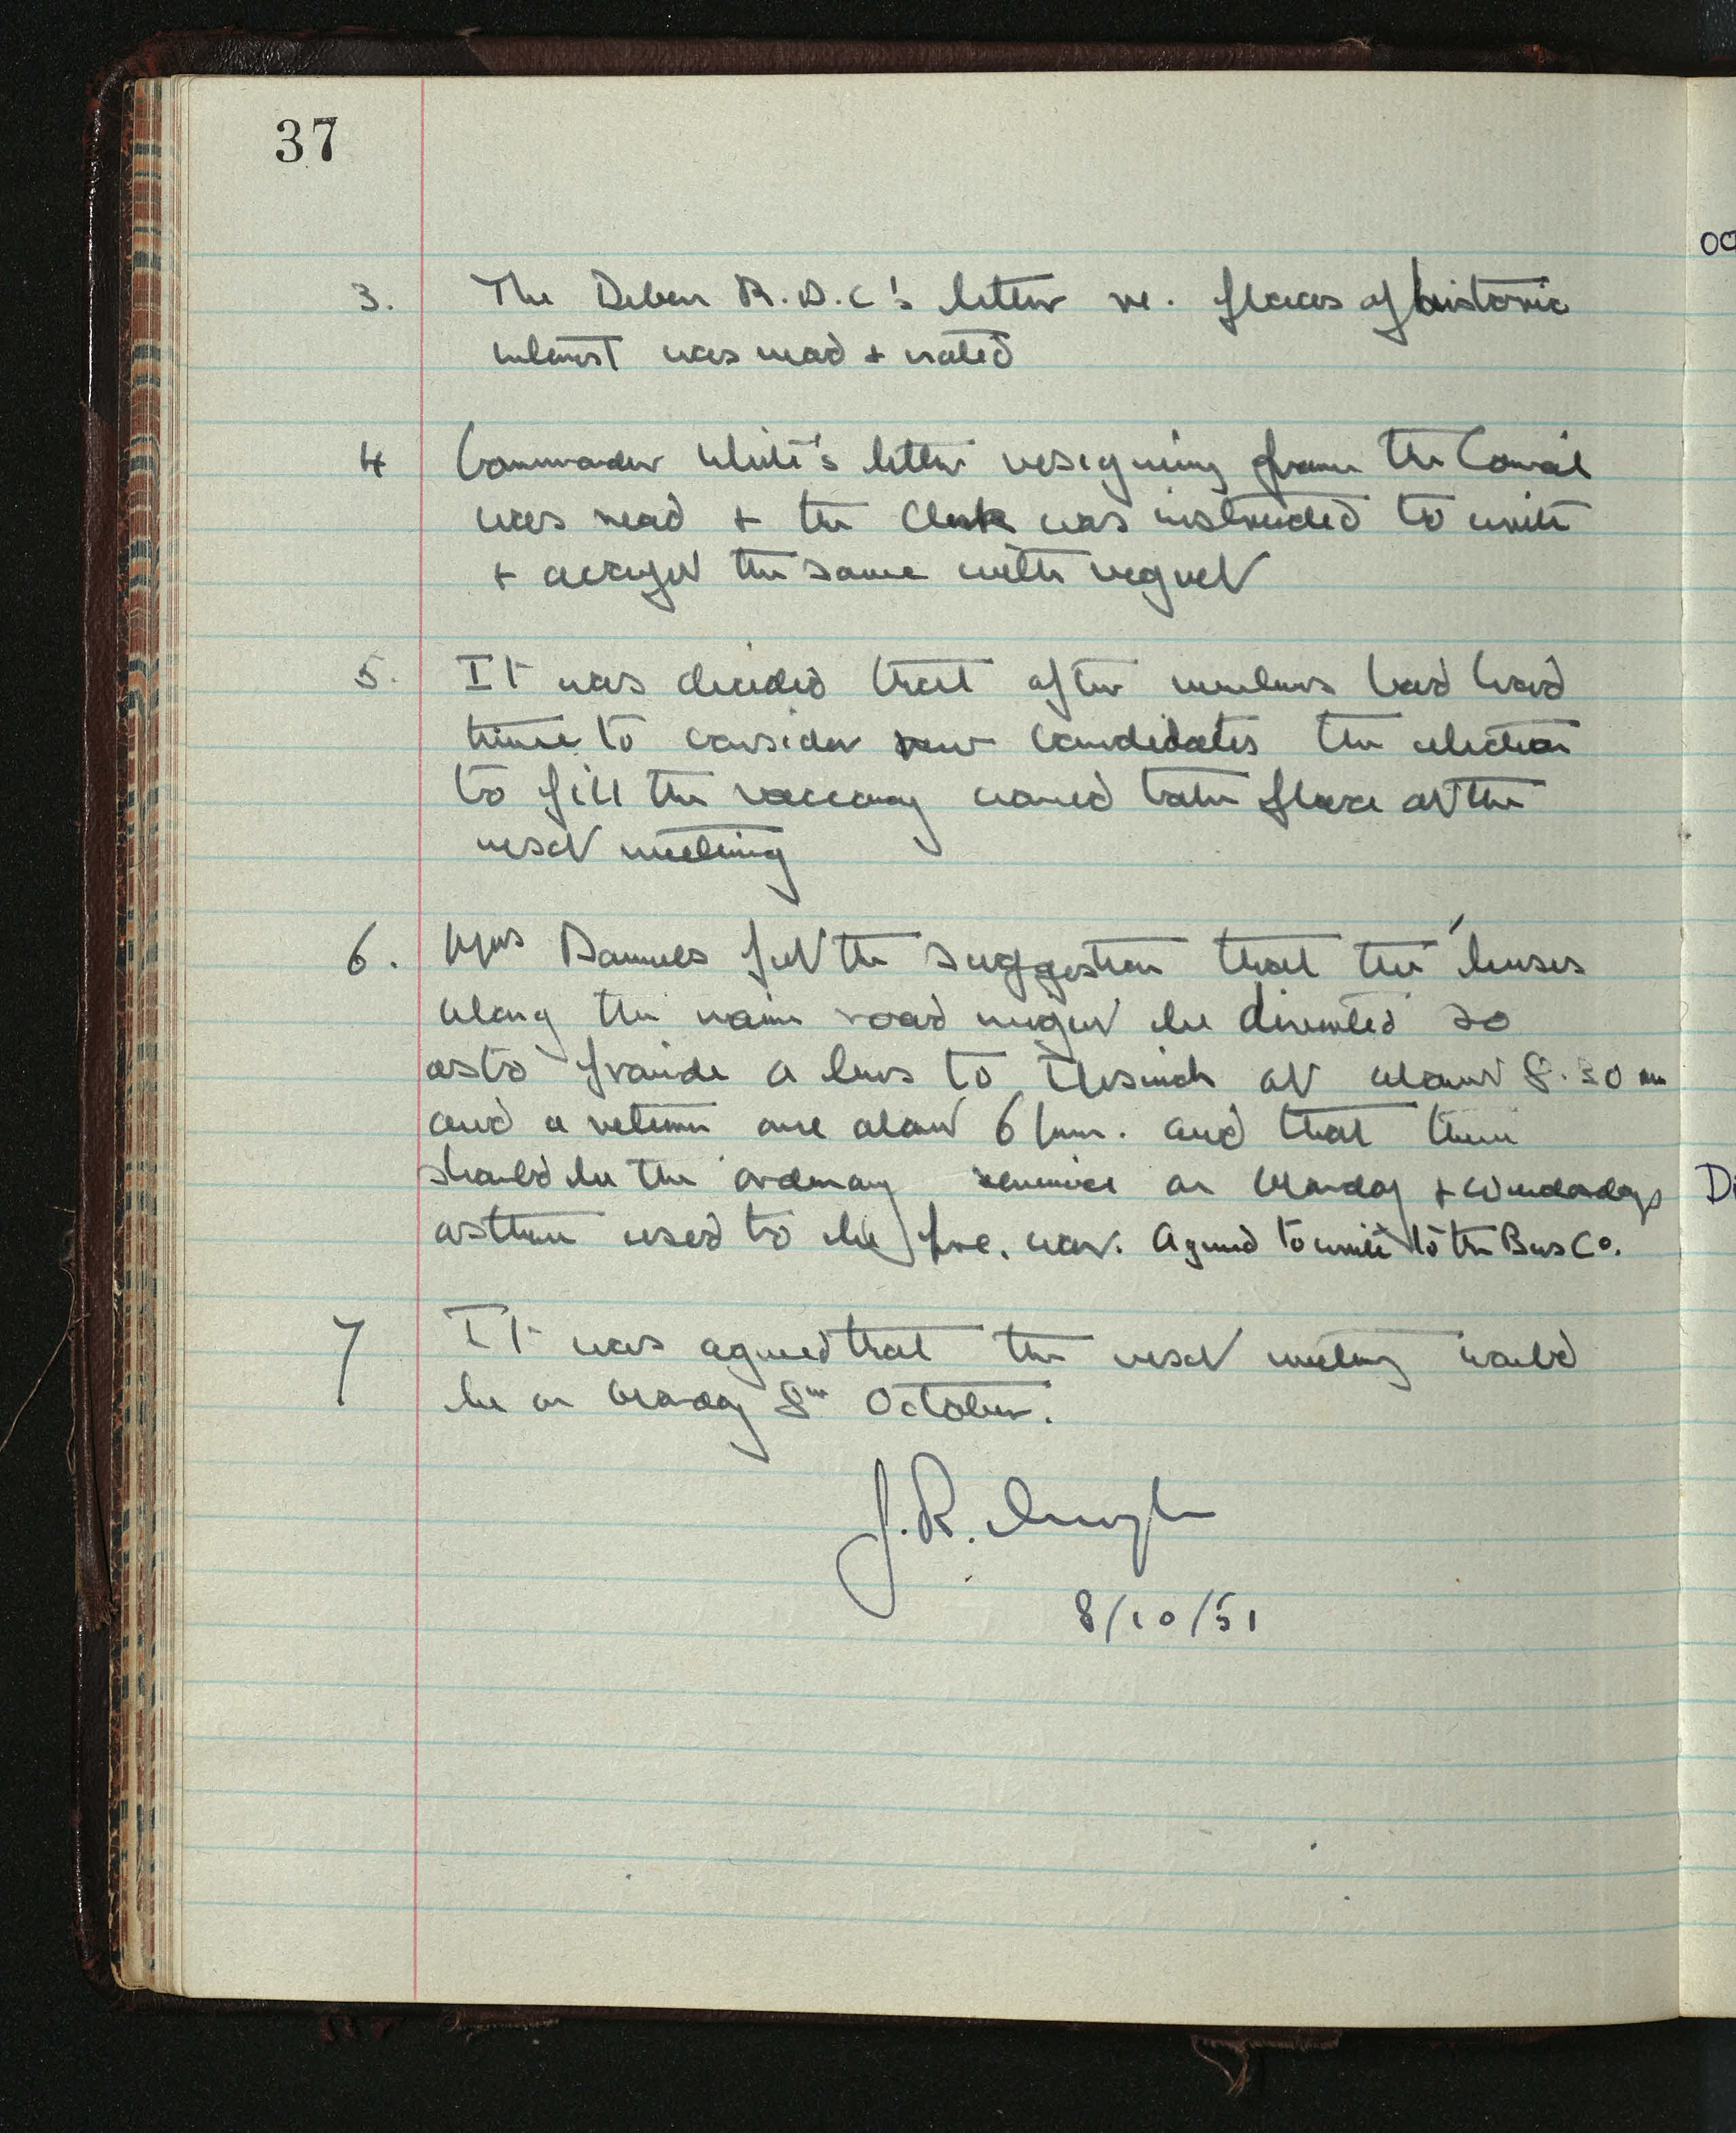 37
3. The Deben R.D.C's letter re. places of historic
interest was read + noted
4 Commander White's letter resigning from the Council
was read + the Clerk was instructed to write
+ accept the same with regret
5. It was decided that after members had had
time to consider new candidates the election
to fill the vacancy would take place at the
next meeting
6. Mrs put the suggestion that the buses
along the main road might be diverted so
as to provide a bus to Ipswich at about 8.30 am
and a return one about 6 pm. and that there
should be the ordinary service on Monday + Wednesdays
as there used to be pre. war. Agreed to write to the Bus Co.
7 It was agreed that the next meeting would
be on Monday 8th October.
J.R.
8/10/51